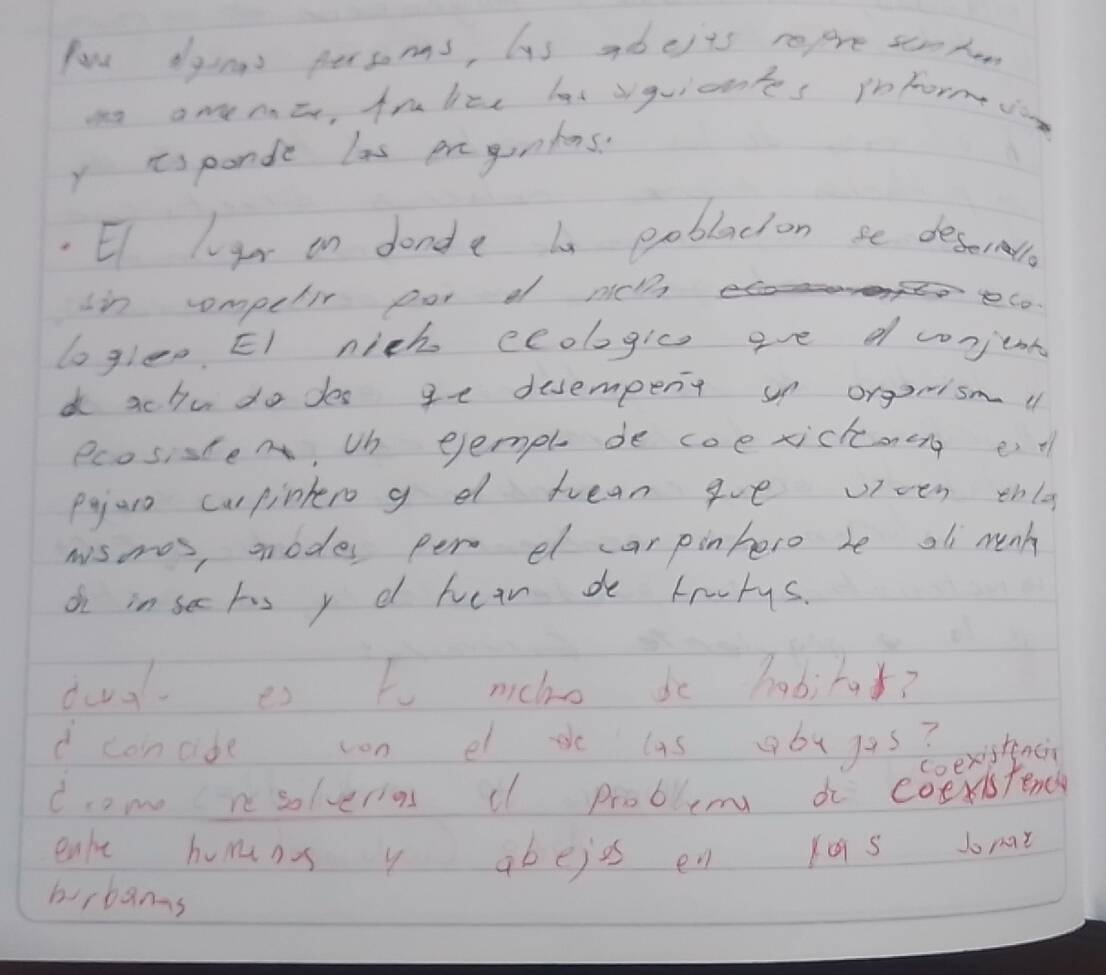 Para algunas personas, las abejas representan
una amenaza, Analice las siguientes informacion
y responde las preguntas.
· El lugar en donde la poblacion se desarrolla
sin competir por el nicho eco-
logico. El nicho ecologico que el conjunto
de actividades que desempeña un organismo
ecosistema, un ejemplo de coexistencia el
pajaro carpintero y el tucan que viven en la
mismos, arboles pero el carpintero se alimenta
de insectos y el tucan de frutas.
cual es tu nicho de habitat?
¿ coincide con el de las abejas?
coexistencia
¿ como resolverias el problema de coexistencia
entre humanos y abejas en las zonas
urbanas